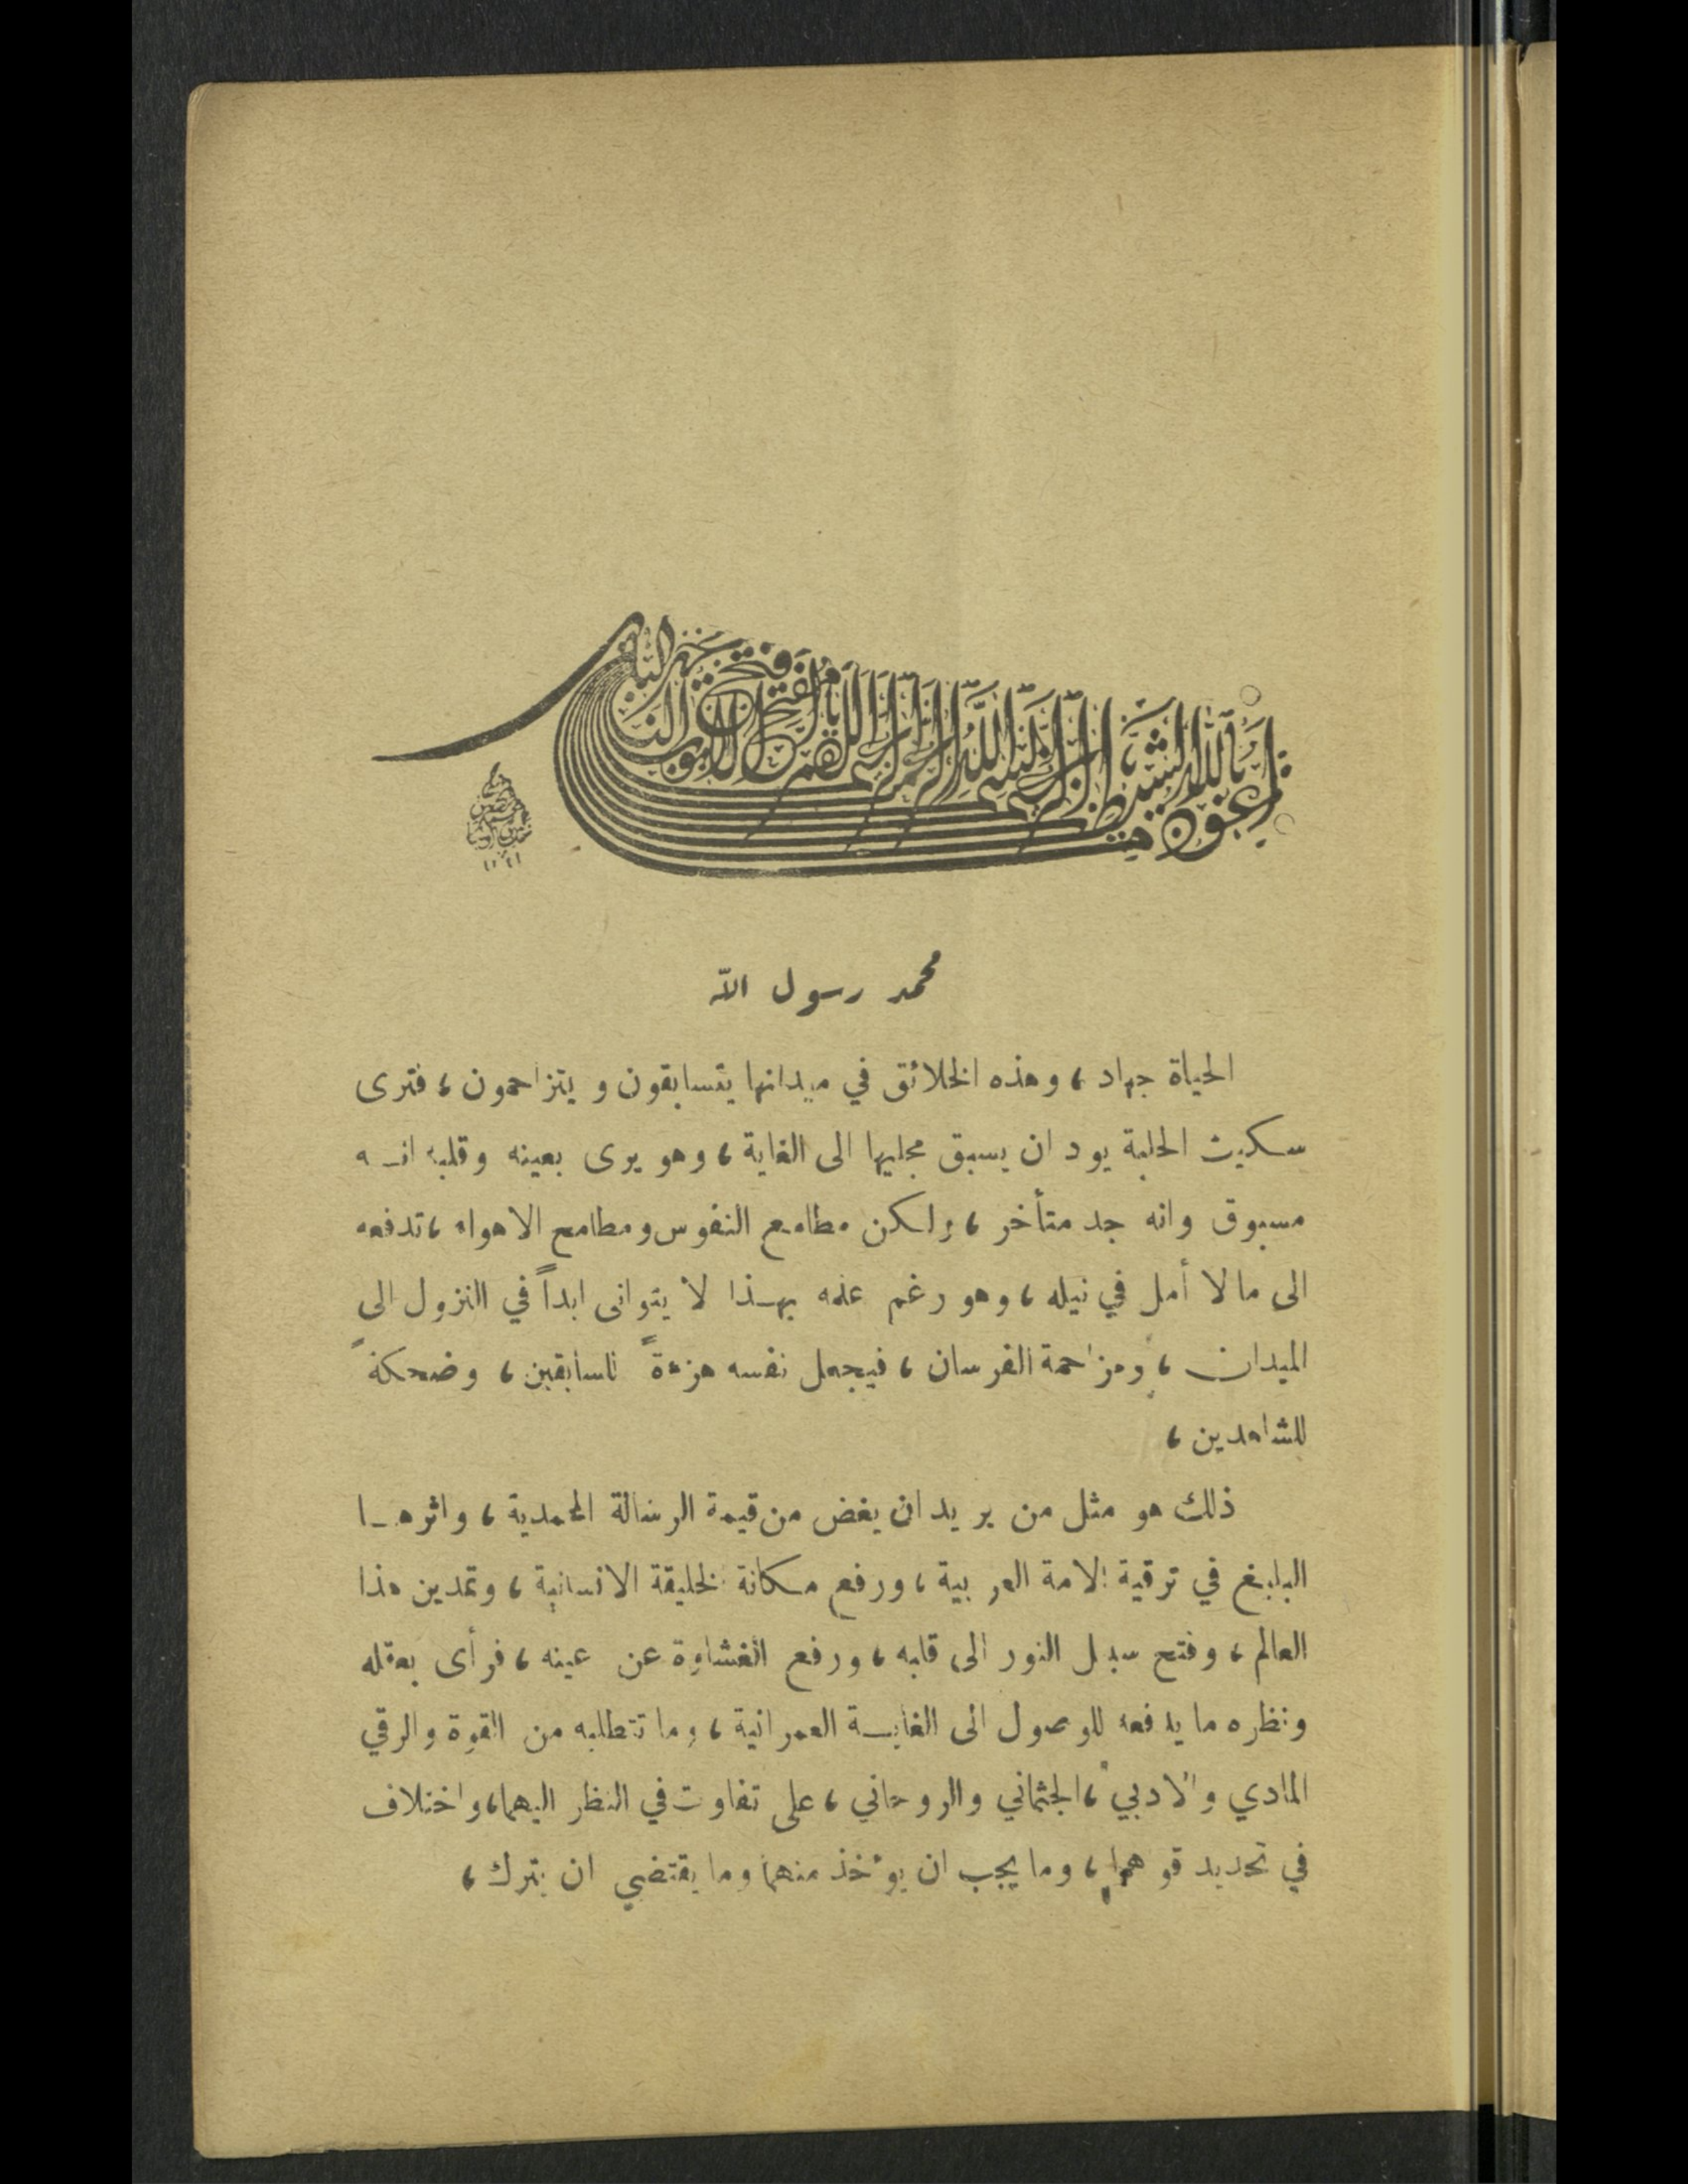 محمد رسول الله
الحياة جهاد، وهذه الخلائق في ميدانها يتسابقون و يتزاحمون، فترى
سكيت الحلبة يود ان يسبق مجليها الى الغاية، وهو يرى بعينه وقلبه انـه
مسبوق وانه جد متأخر، ولكن مطامع النفوس ومطامح الاهواء، تدفعه
الى ما لا أمل في نيله، وهو رغم علمه بهـذا لا يتوانى ابداً في النزول الى
الميدان، ومزاحمة الفرسان، فيجعل نفسه هزءةً للسابقين، وضحكةً
للشاهدين،
ذلك هو مثل من يريد ان يغض من قيمة الرسالة المحمدية، واثرهـا
البليغ في ترقية الامة العربية، ورفع مكانة الخليقة الانسانية، وتمدين هذا
العالم، وفتح سبل النور الى قلبه، ورفع الغشاوة عن عينه، فرأى بعقله
ونظره ما يدفعه للوصول الى الغايـة العمرانية، وما تتطلبه من القوة والرقي
المادي والادبي، الجثماني والروحاني، على تفاوت في النظر اليهما، واختلاف
في تحديد قوهما، وما يجب ان يؤخذ منهما وما يقتضي ان يترك،